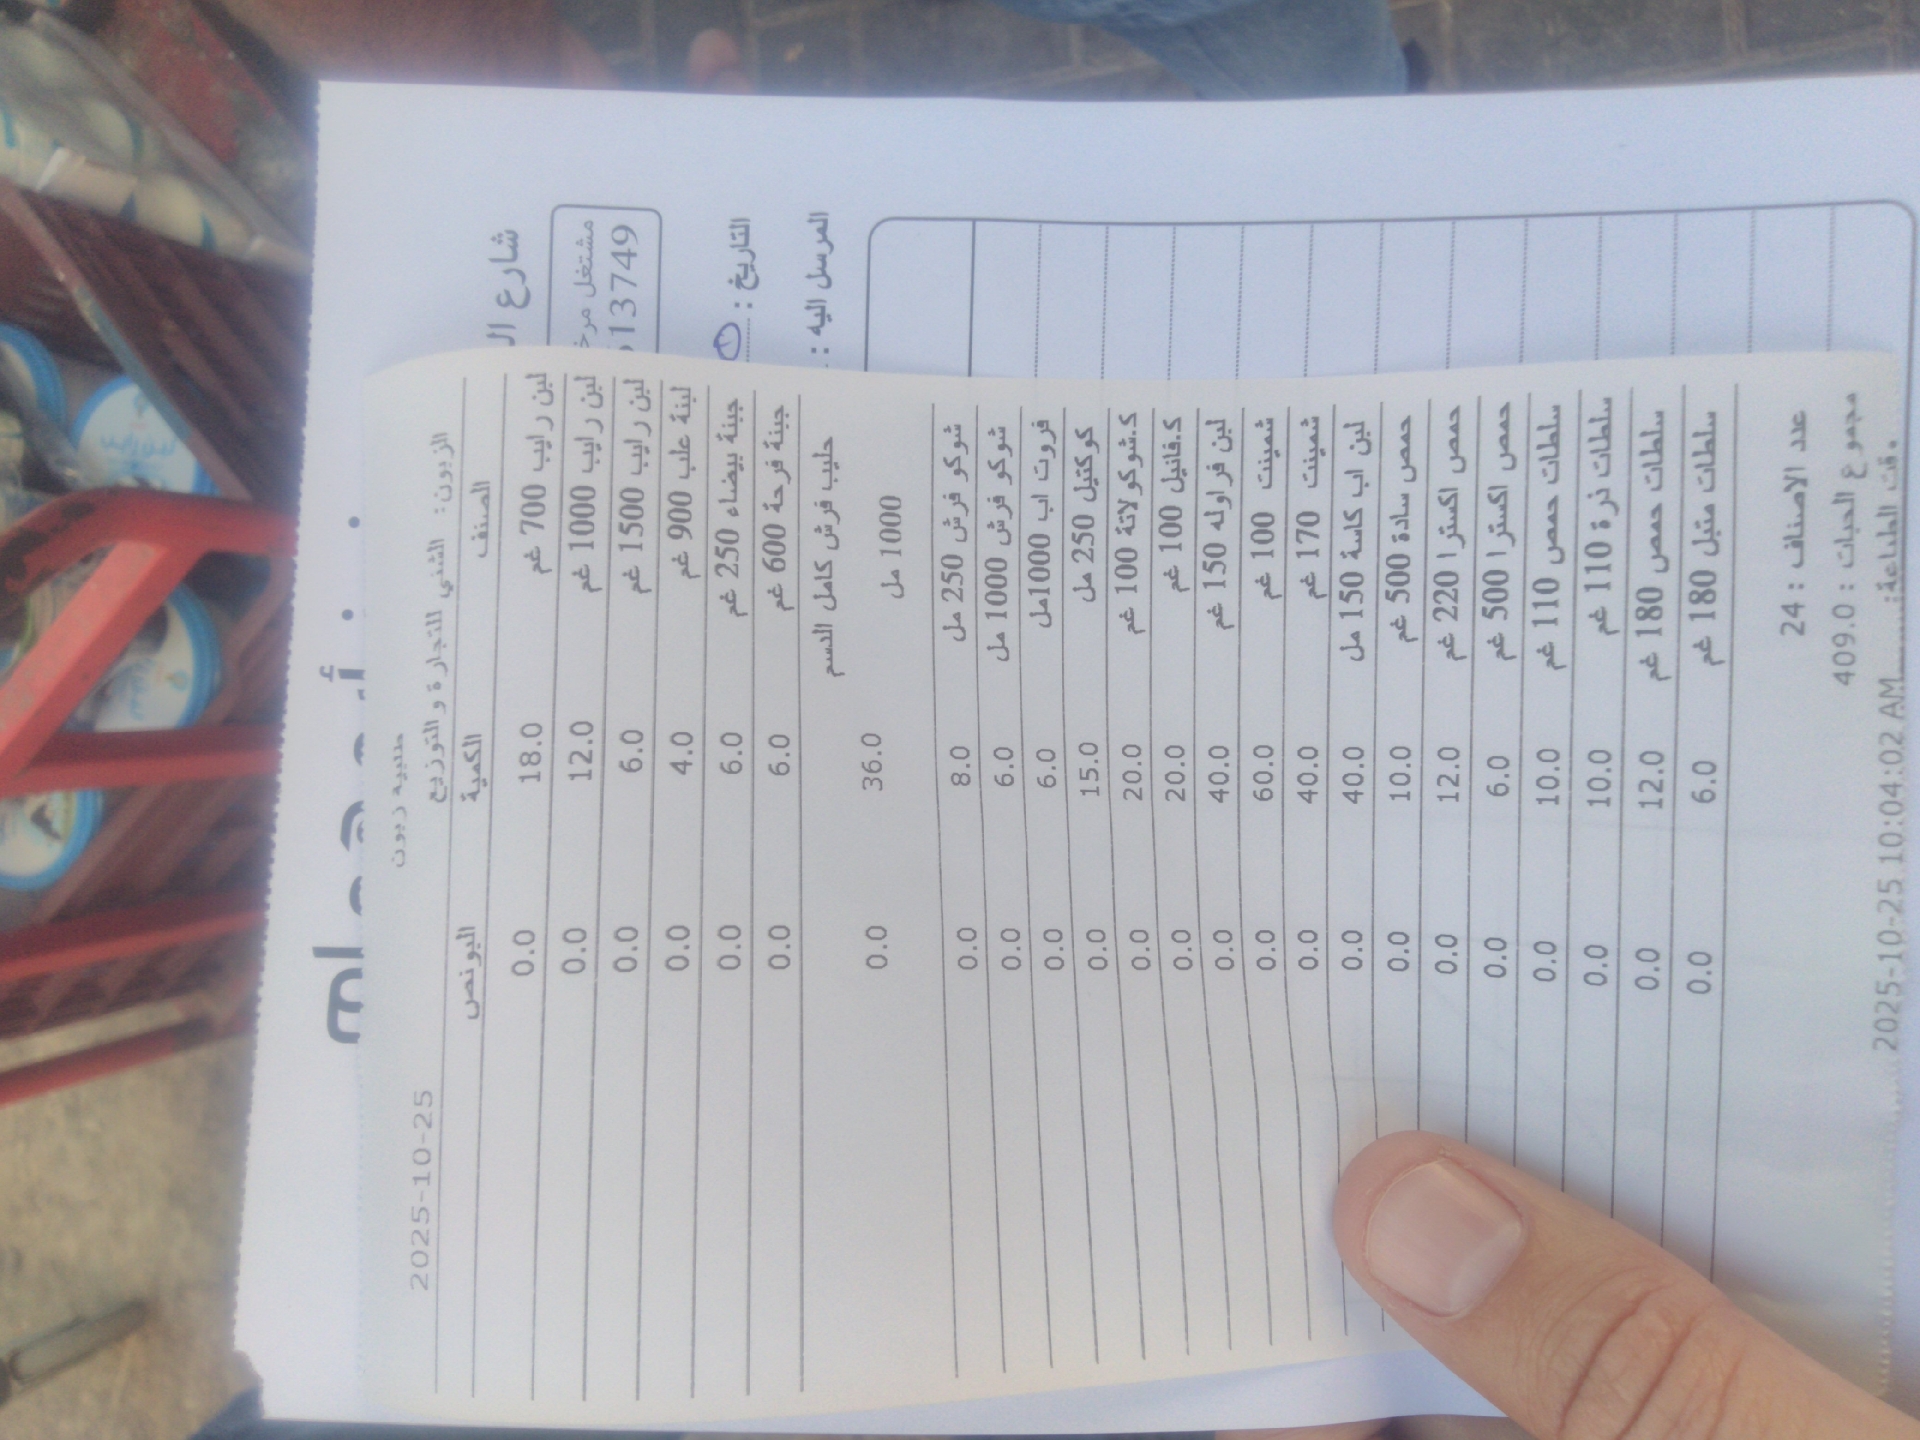 شارع
مشتغل
513749
التاريخ :
المرسل اليه :
طلبيه زبون
الزبون: الشني للتجارة و التوزيع 2025-10-25
الصنف الكمية البونص
لبن رايب 700 غم 18.0 0.0
لبن رايب 1000 غم 12.0 0.0
لبن رايب 1500 غم 6.0 0.0
لبنة علب 900 غم 4.0 0.0
جبنة بيضاء 250 غم 6.0 0.0
جبنة فرحة 600 غم 6.0 0.0
حليب فرش كامل الدسم
1000 مل 36.0 0.0
شوكو فرش 250 مل 8.0 0.0
شوكو فرش 1000 مل 6.0 0.0
فروت اب 1000مل 6.0 0.0
كوكتيل 250 مل 15.0 0.0
ك.شوكولاتة 100 غم 20.0 0.0
ك.فانيل 100 غم 20.0 0.0
لبن فراوله 150 غم 40.0 0.0
شمينت 100 غم 60.0 0.0
شمينت 170 غم 40.0 0.0
لبن اب كاسة 150 مل 40.0 0.0
حمص سادة 500 غم 10.0 0.0
حمص اكسترا 220 غم 12.0 0.0
حمص اكسترا 500 غم 6.0 0.0
سلطات حمص 110 غم 10.0 0.0
سلطات ذرة 110 غم 10.0 0.0
سلطات حمص 180 غم 12.0 0.0
سلطات متبل 180 غم 6.0 0.0
عدد الاصناف : 24
مجموع الحبات : 409.0
وقت الطباعة: 2025-10-25 10:04:02 AM